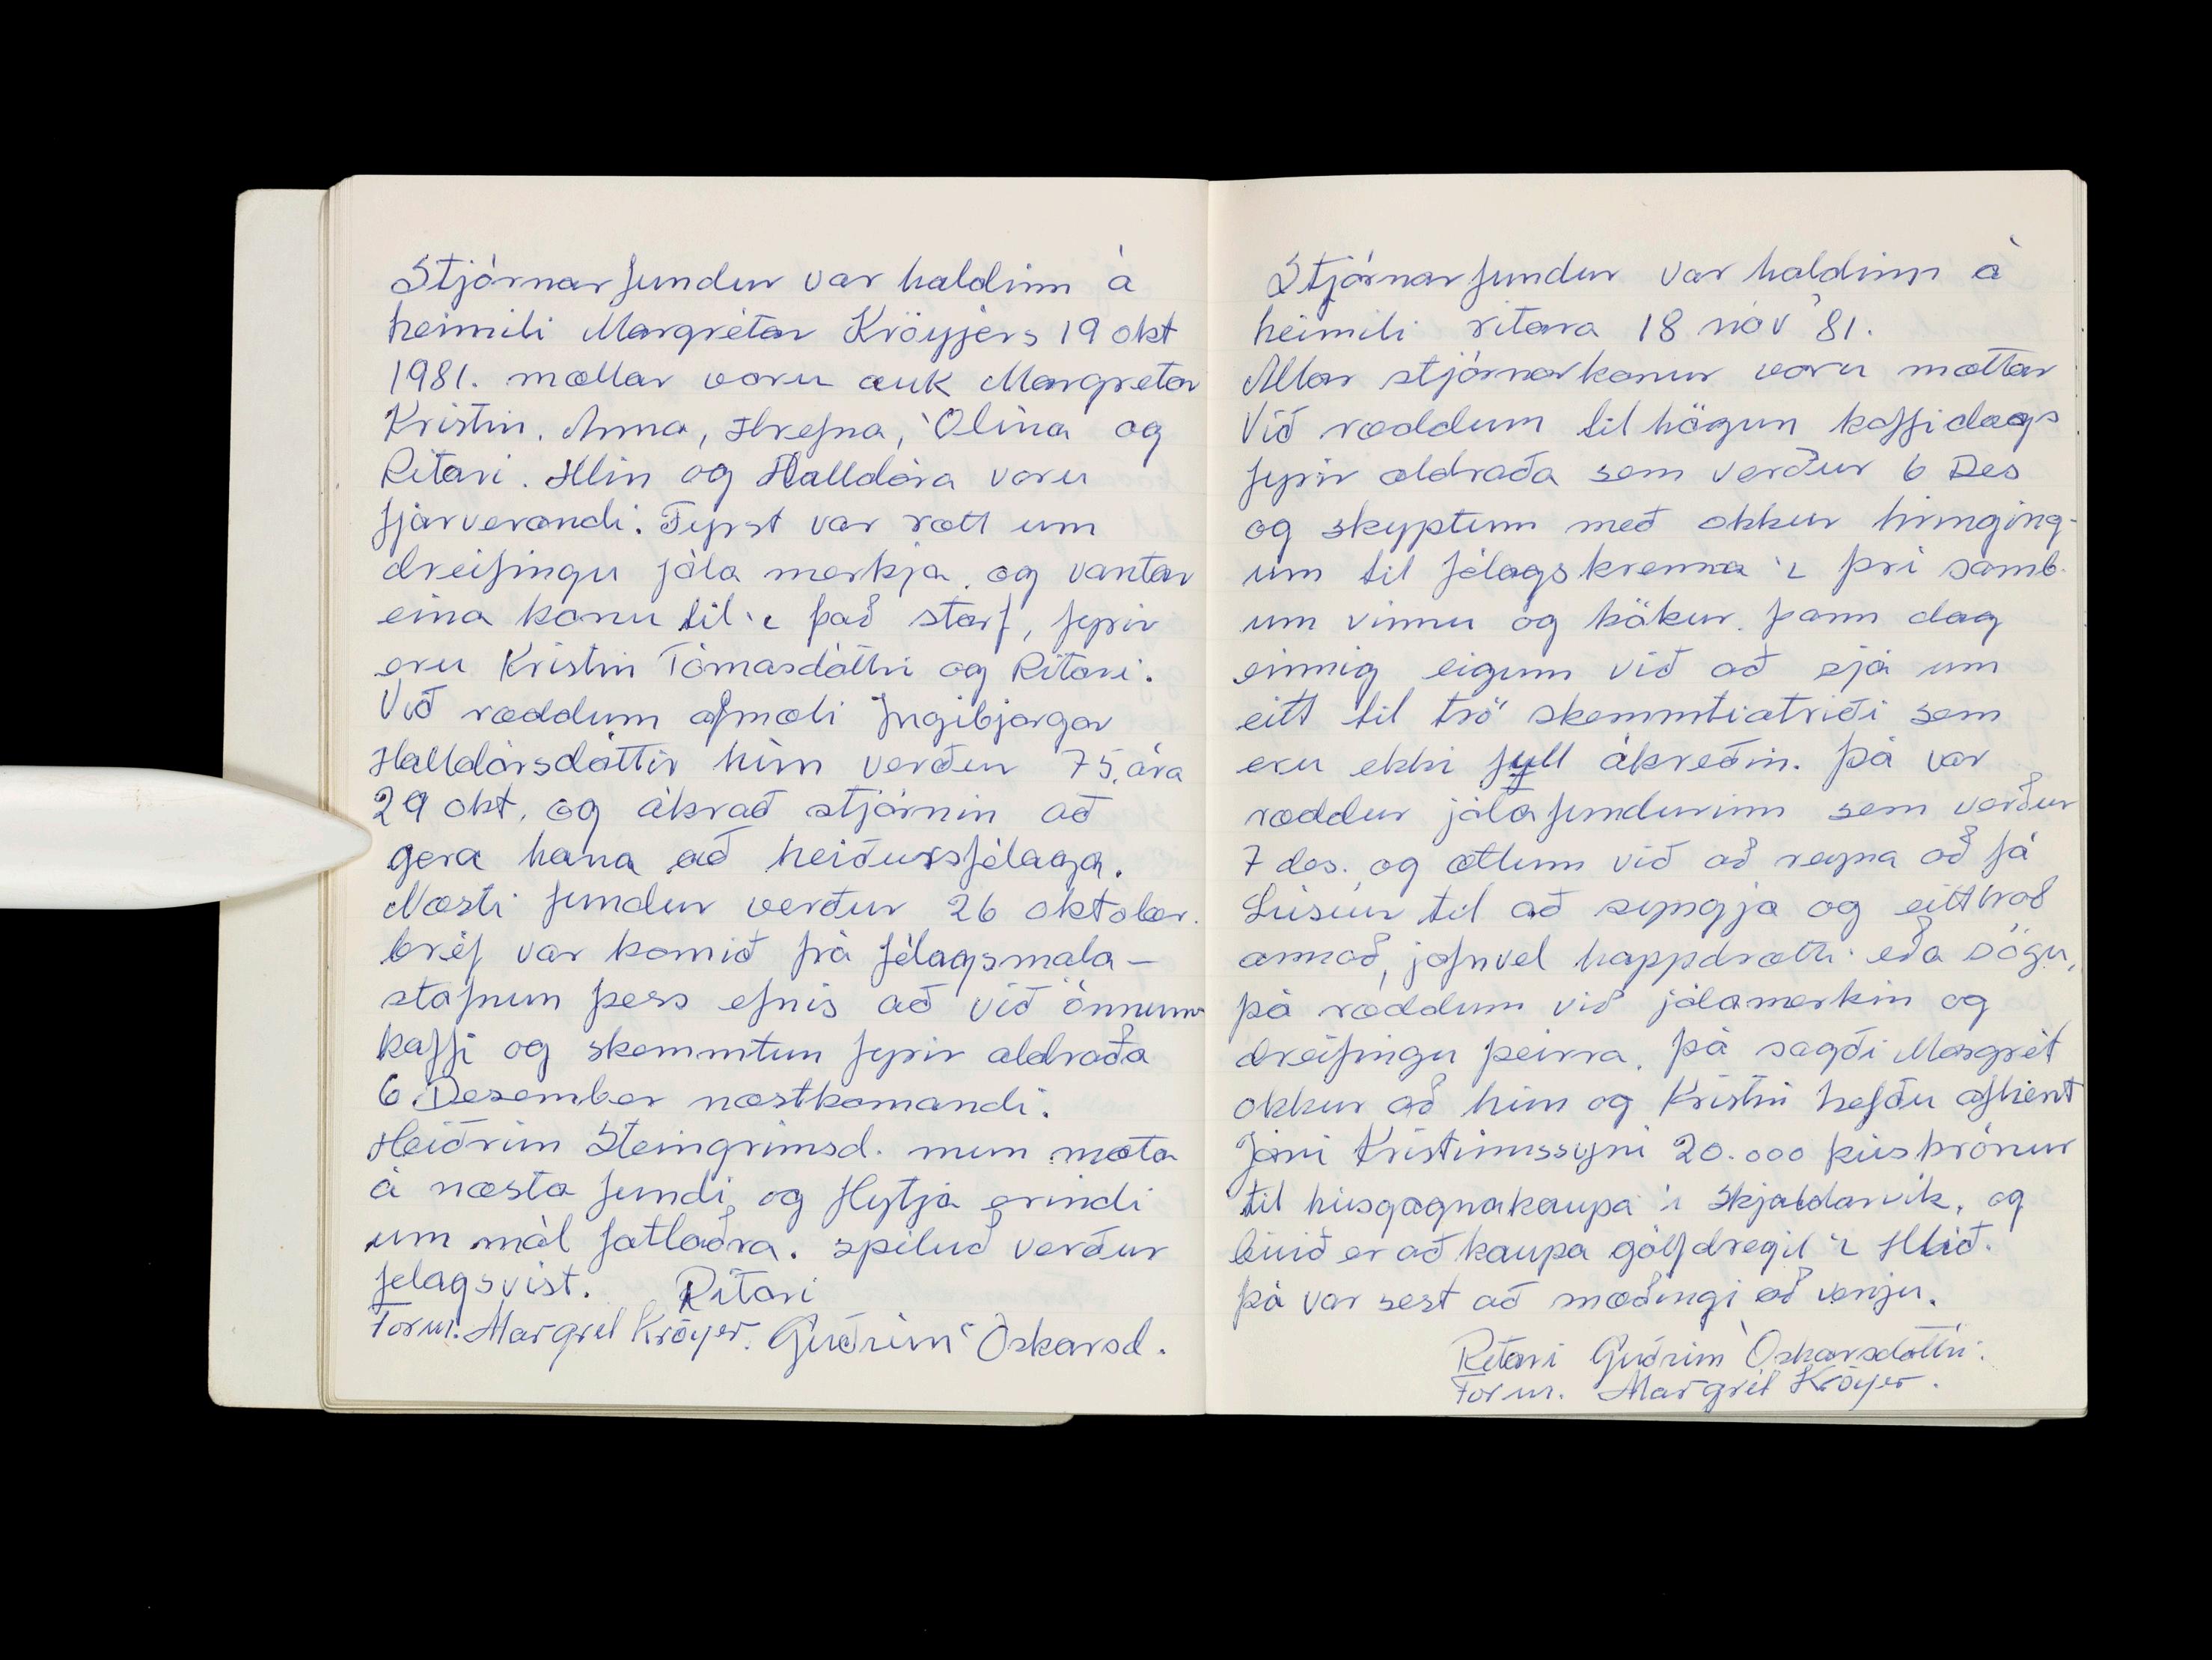 Stjórnarfundur var haldinn á
heimili Margrétar Kröyjers 19 okt
1981. mættar voru auk Margretar
Kristín, Anna, Hrefna, Ólína og
Ritari. Hlín og Halldóra voru
fjarverandi. Fyrst var rætt um
dreifingu jóla merkja. og vantar
eina konu til í það starf, fyrir
eru Kristín Tómasdóttir og Ritari.
Við ræddum afmæli Ingibjargar
Halldórsdóttir hún verður 75. ára
29 okt. og ákvað stjórnin að
gera hana að heiðursfélaga.
Næsti fundur verður 26 oktober.
bréf var komið frá félagsmála-
stofnun þess efnis að við önnumst
kaffi og skemmtun fyrir aldraða
6 Desember næstkomandi.
Heiðrún Steingrímsd. mun mæta
á næsta fundi og flytja erindi
um mál fatlaðra. spiluð verður
félagsvist. Ritari
Form. Margrét Kröyer. Guðrún Óskarsd.
Stjórnarfundur var haldinn á
heimili ritara 18 nóv '81.
Allar stjórnarkonur voru mættar
Við ræddum tilhögun kaffidags
fyrir aldraða sem verður 6 Des
og skyptum með okkur hringing-
um til félagskvenna í því samb.
um vinnu og kökur. þann dag
einnig eigum við að sjá um
eitt til tvö skemmtiatriði sem
eru ekki full ákveðin. þá var
ræddur jólafundurinn sem verður
7 des. og ætlum við að reyna að fá
Lúsíur til að syngja og eitthvað
annað, jafnvel happdrætti eða sögu,
þá ræddum við jólamerkin og
dreifingu þeirra. þá sagði Margrét
okkur að hún og Kristín hefðu afhent
Jóni Kristinssyni 20.000 þús krónur
til húsgagnakaupa í Skjaldarvík, og
búið er að kaupa gólfdregil í Hlíð.
þá var sest að snæðingi að vanju.
Ritari Guðrún Óskarsdóttir.
Form. Margrét Kröyer.